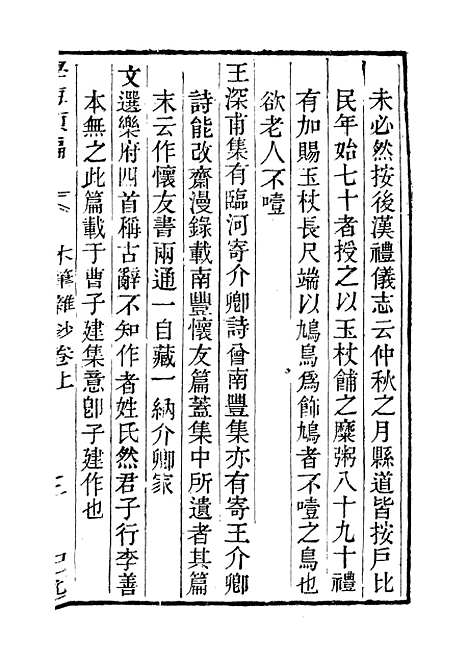 未必然按後漢禮儀志云仲秋之月縣道皆按戶比
民年始七十者授之以玉杖餔之糜粥八十九十禮
有加賜玉杖長尺端以鳩鳥爲飾鳩者不噎之鳥也
欲老人不噎
王深甫集有臨河寄介卿詩曾南豐集亦有寄王介卿
詩能改齋漫錄載南豐懷友篇蓋集中所遺者其篇
末云作懷友書兩通一自藏一納介卿家
文選樂府四首稱古辭不知作者姓氏然君子行李善
本無之此篇載于曹子建集意卽子建作也
木筆雜抄卷上
三